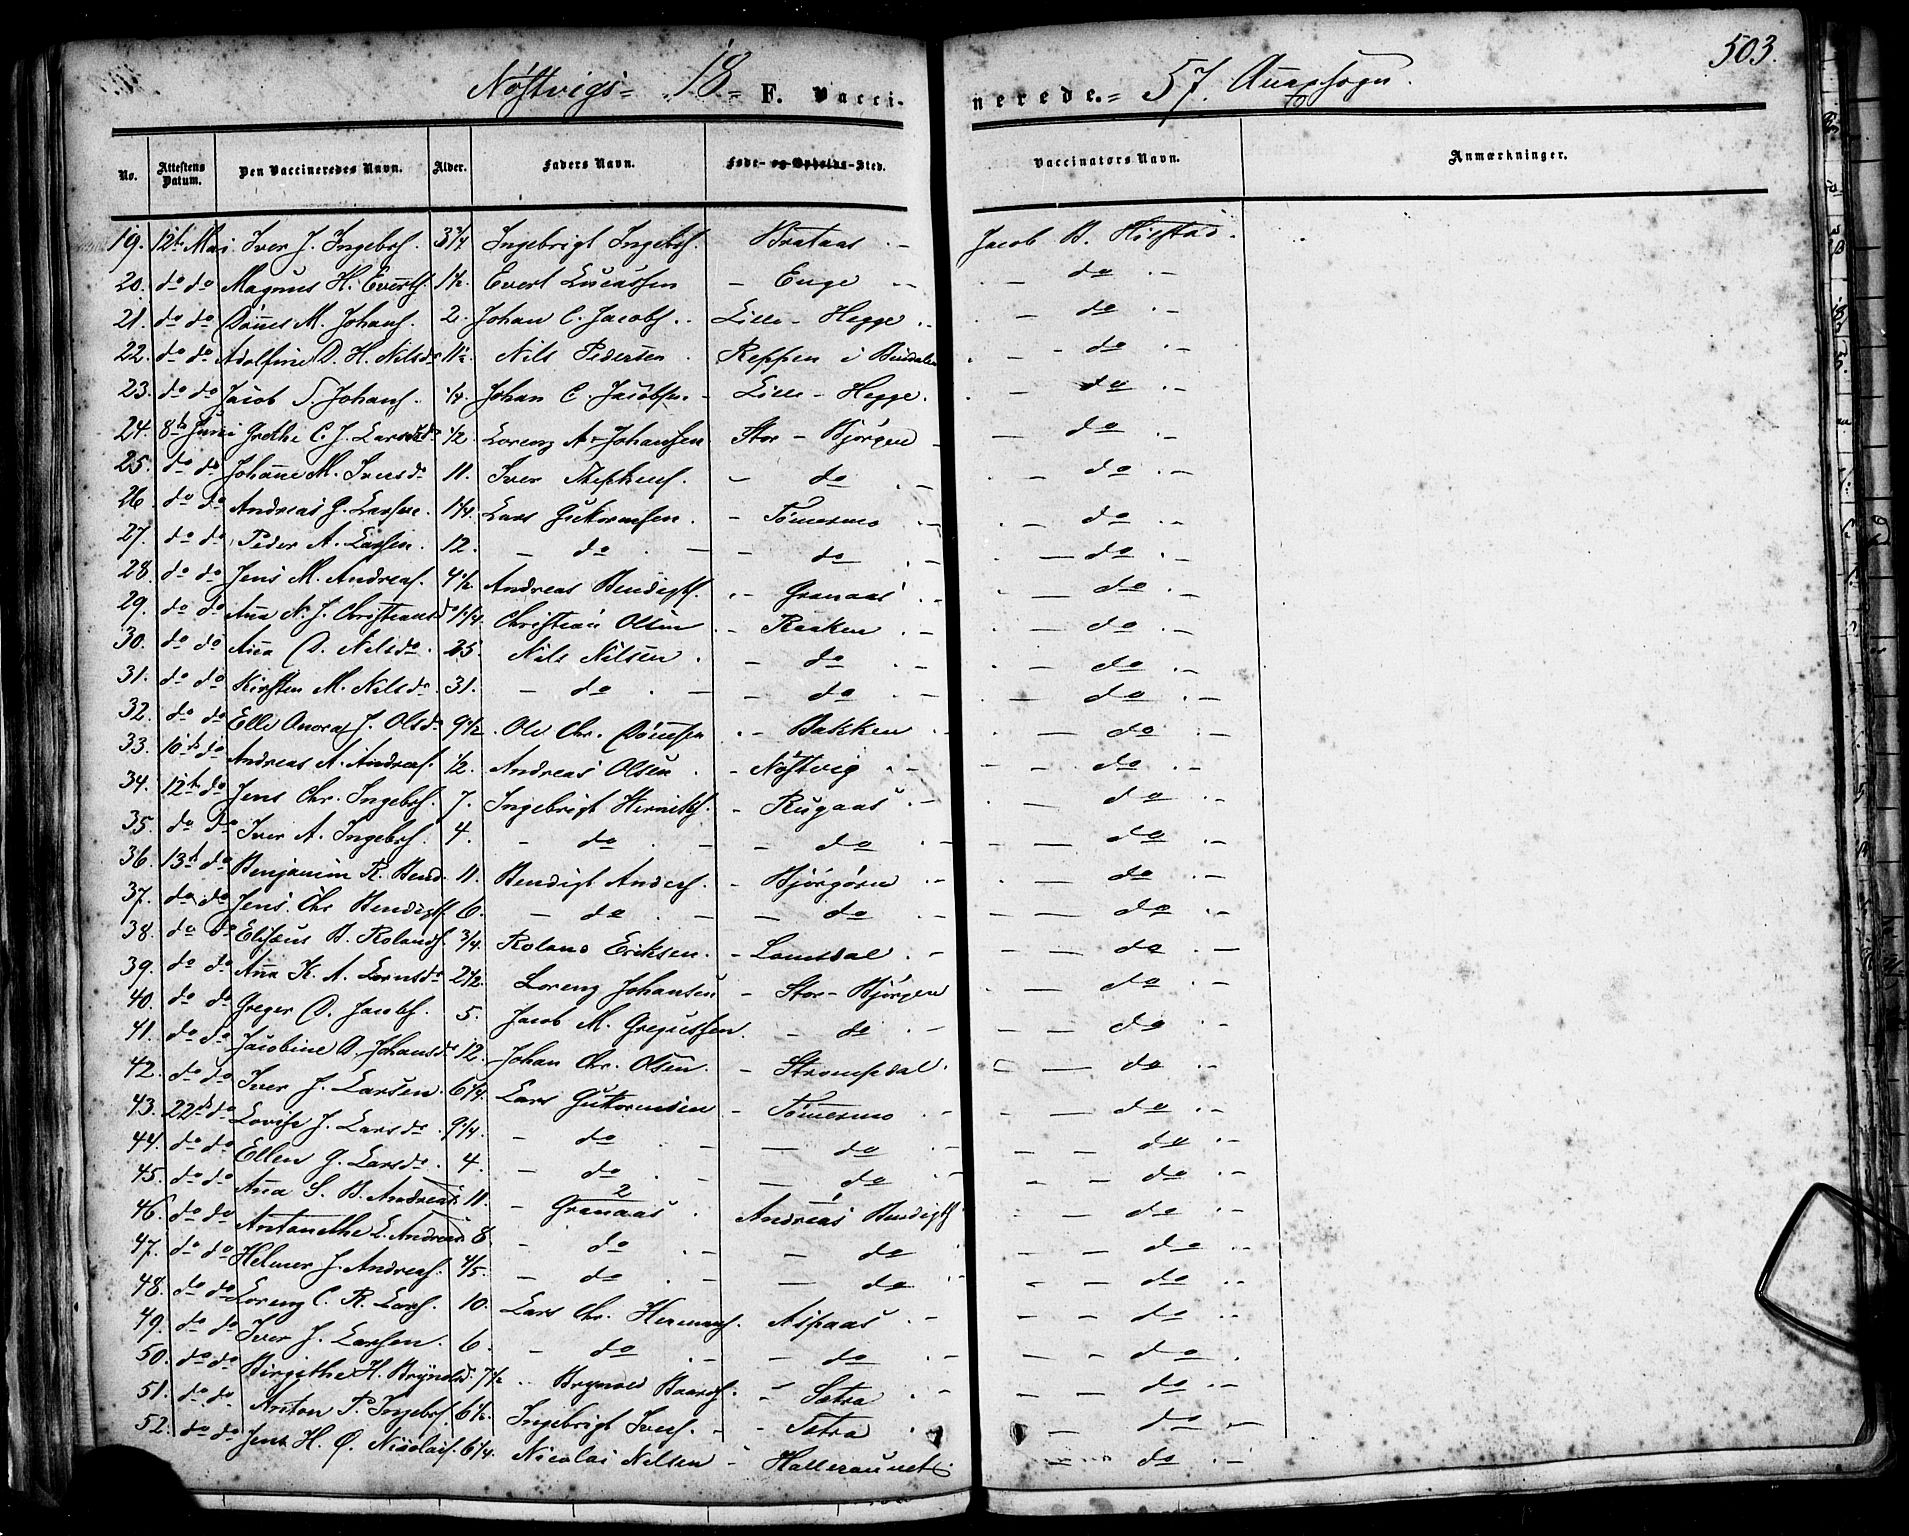 503.
Nöstvigs- 18- F. Vaccinerede.- 57. Anapsogn.
No. Attestens Datum. Den Vaccineredes Navn. Alder. Faders Navn. Føde- og Opholds-Sted. Vaccinators Navn. Anmærkninger.
19. 12te Mai Iver J. Ingebrs. 3 3/4 Ingebrigt Ingebrs. Brataas Jacob B. Hilstad.
20. do do Magnus H. Everts. 1 1/2 Evert Lucassen Enge do
21. do do Dines M. Johans. 2. Johan C. Jacobs. Lille-Hegge do
22. do do Adolfine D. H. Nilsdr 11 1/2. Nils Pedersen Reppen i Bindalen do
23. do do Jacob S. Johans. 1/4. Johan C. Jacobsen Lille-Hegge. do
24. 8de Juni Grethe C. J. Larsdr 1/2 Lorenz A. Johansen Stor-Bjørgen do
25. do do Johanne M. Iversdr 11. Iver Stephens. do do
26. do do Andreas G. Larsen. 1 1/4. Lars Guttormsen. Tømermo do
27. do do Peder A. Larsen. 12. do do do
28. do do Jens M. Andreas. 4 1/2 Andreas Bendigts. Granaas do
29. do do Ana N. J. Christiansdr 1 1/4. Christian Olsen Raaken do
30. do do Ana D. Nelsdr. 25. Nils Nilsen do do
31. do do Kirsten M. Nilsdr. 31. do do do
32. do do Elle Anora J. Olsdr 9 1/2. Ole Chr. Dönesen Bakken do
33. 10de do Andreas A. Andreas. 1/2 Andreas Olsen Nöstvig do
34. 12te do Jens Chr. Ingebrs. 7. Ingebrigt Rugaas do
35. do do Iver A. Ingebrs. 4. do do do
36. 13de do Benjamin R. Bend. 11. Bendigt Anders. Bjørgøen do
37. do do Jens Chr Bendigts 6. do do do
38. do do Elisæus B. Rolands. 3/4. Roland Eriksen. Lomsdal do
39. do do Ana K. A. Lornsdr 2 1/2. Lorenz Johansen Stor-Bjørgen do
40. do do Greger D. Jacobs. 5. Jacob M. Gregussen do do
41. do do Jacobine D. Johansdr 12. Johan Chr. Olsen. Strompdal do
42. do do Iver J. Larsen. 6 1/4. Lars Guttormsen Tømermo do
43. 22de do Lovise J. Larsdr. 9 1/4. do do do
44. do do Ellen G. Larsdr. 4. do do do
45. do do Ana S. B. Andreas. 11. Granaas 2 Andreas Bendigts do
46. do do Antonethe L. Andreas 8. do do do
47. do do Helmer J. Andreas. 4/5. do do do
48. do do Lorenz C. R. Lars. 10. Lars Chr. Hermans. Aspaas do
49. do do Iver J. Larsen. 6. do do do
50. do do Birgithe H. Brynoldsd. 7 1/2 Brynold Baards. Setra do
51. do do Anton P. Ingebrs. 6 1/2. Ingebrigt Ivers. Setra do
52. do do Jens H. Ø. Nicolais. 6 1/4. Nicolai Nelsen Halleraunet do